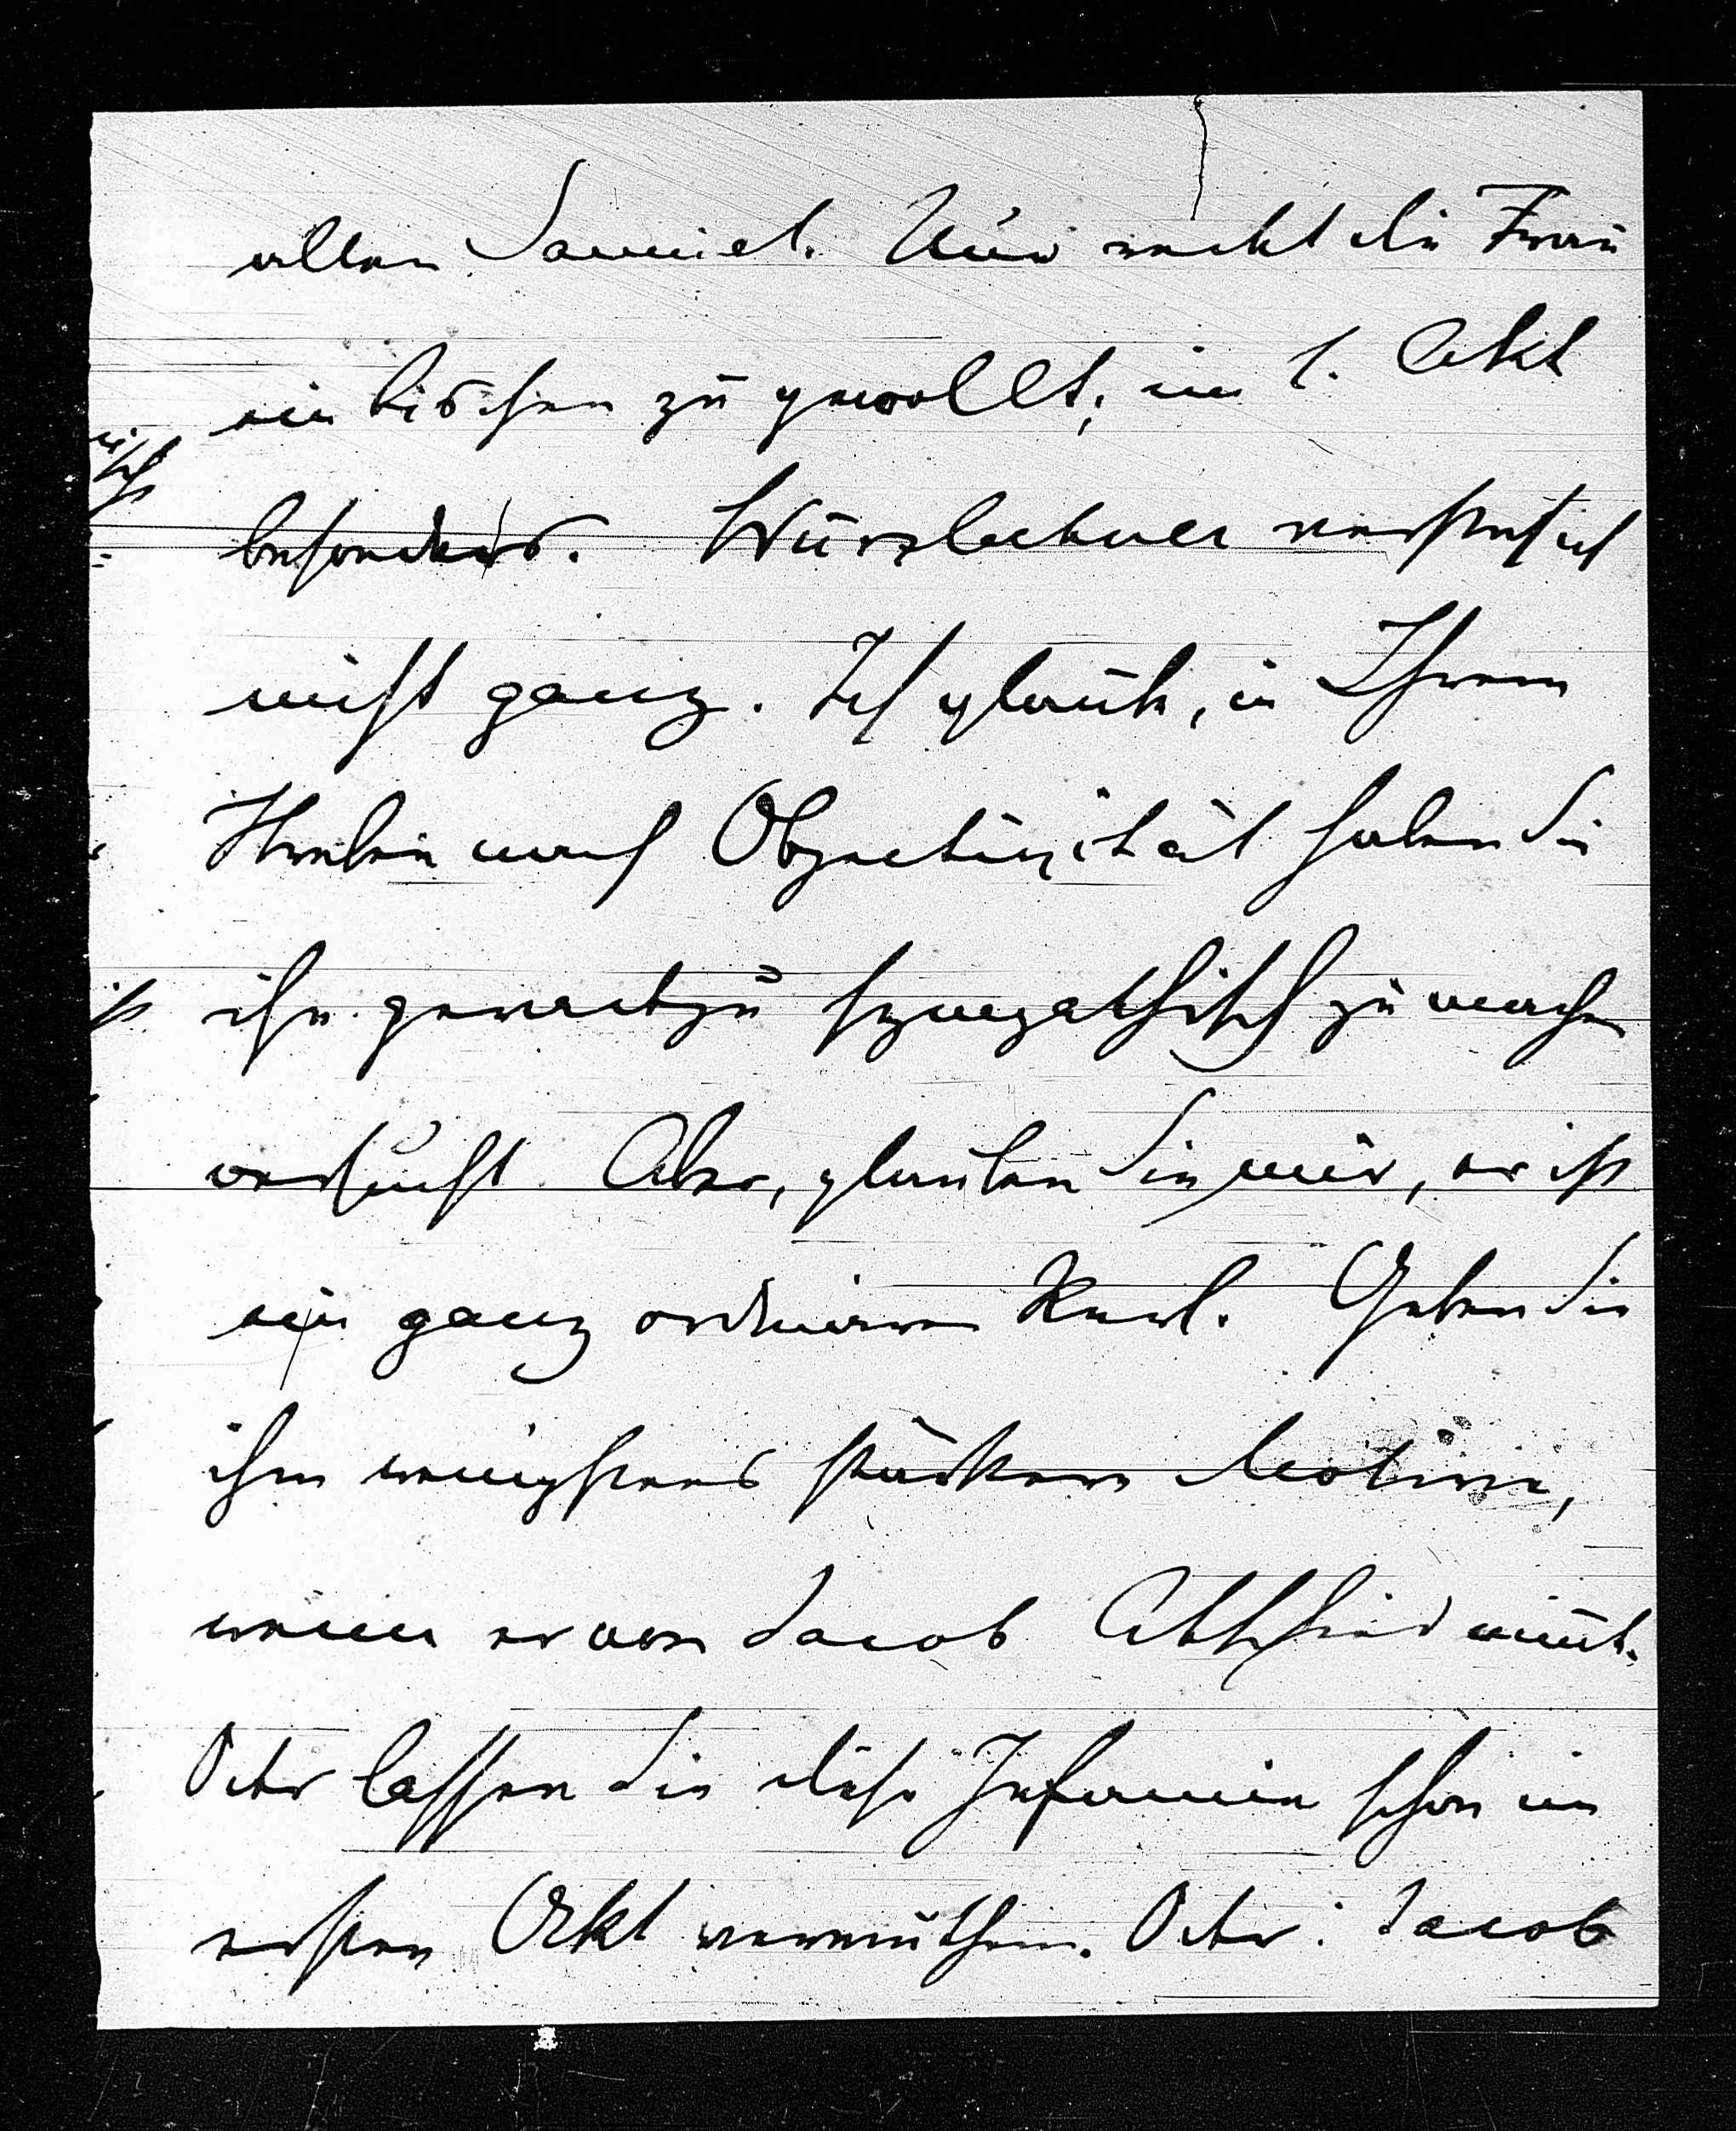 alten Samuel. Nur redet die Frau
ein bischen zu gewollt; im 1. Akt
besonders. Wurzlechner versteh ich
nicht ganz. Ich glaube, in Ihrem
Streben nach Objectivität haben Sie
ihn geradezu sympathisch zu machen
versucht. Aber, glauben Sie mir, er ist
ein ganz ordinärer Kerl. Geben Sie
ihm wenigstens stärkere Motive,
wenn er von Jacob Abschied nimmt.
Oder lassen Sie diese Infamie schon im
ersten Akt vermuthen. Oder: Jacob